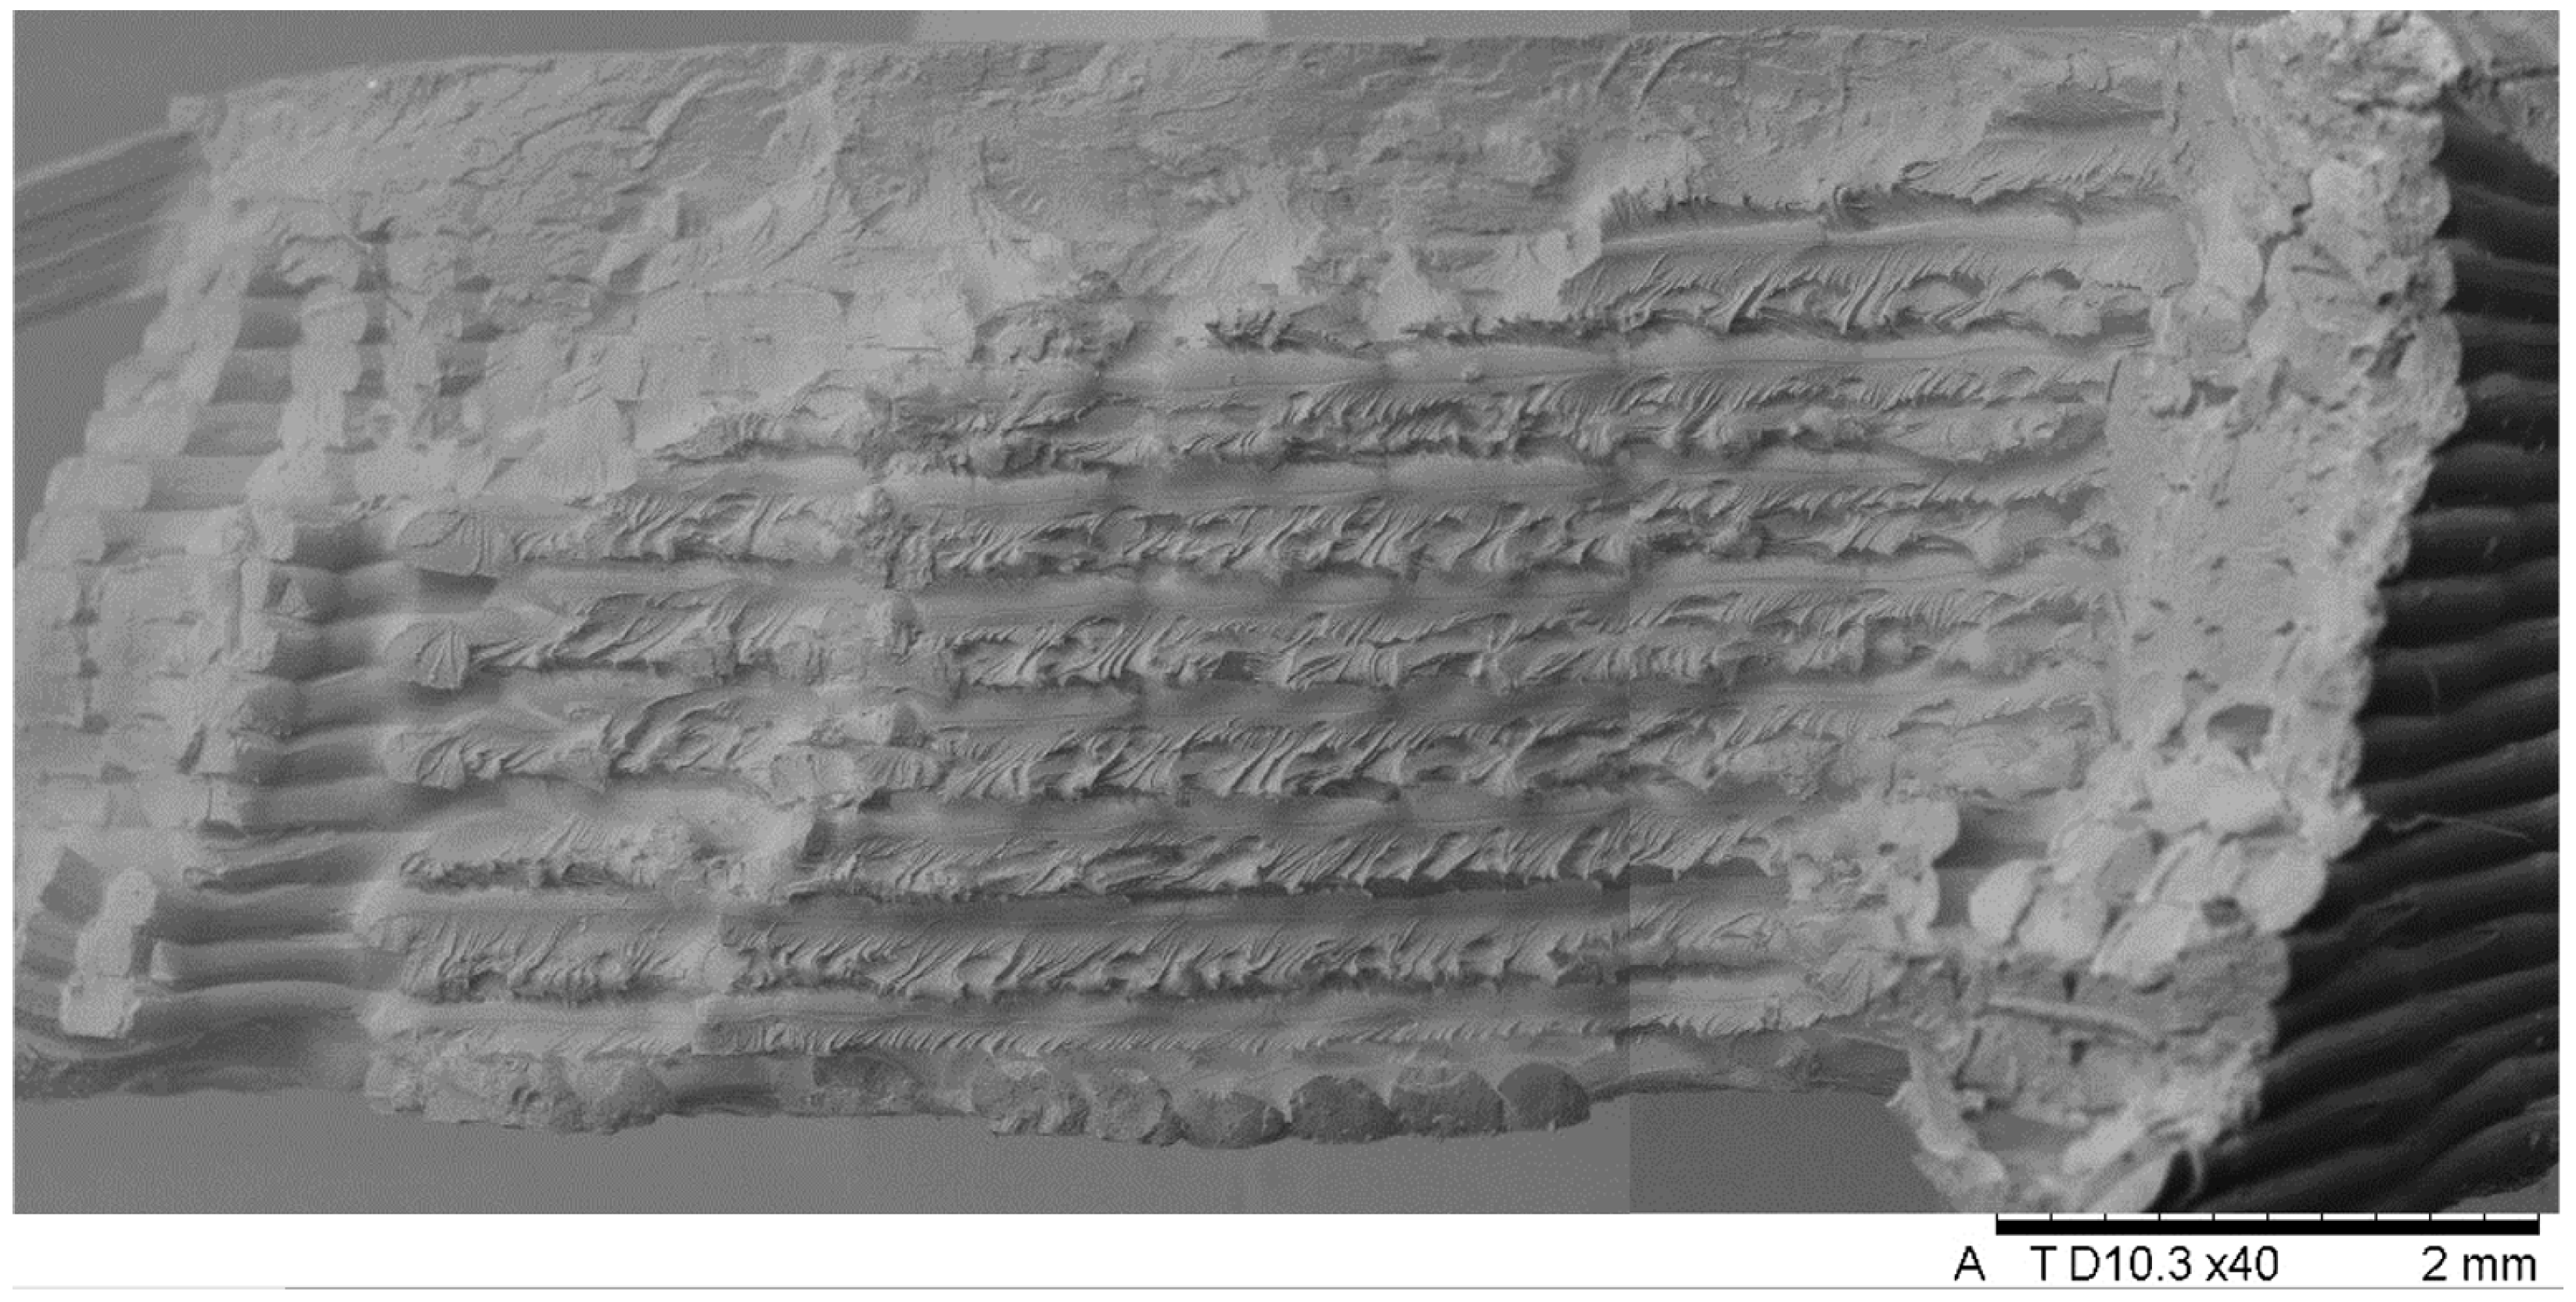 A T D10.3 x40 2 mm